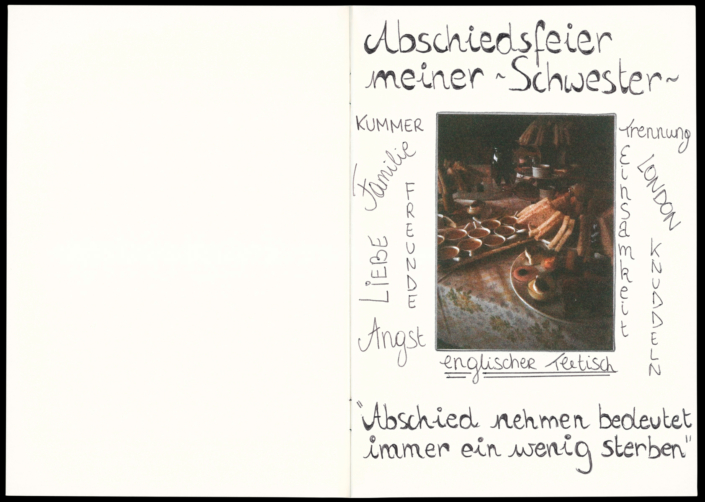 Abschiedsfeier
meiner ~Schwester~
KUMMER
Familie
FREUNDE
LiEBE
Angst
Trennung
Einsamkeit
LONDON
KNUDDELN
englischer Teetisch
"Abschied nehmen bedeutet
immer ein wenig sterben"